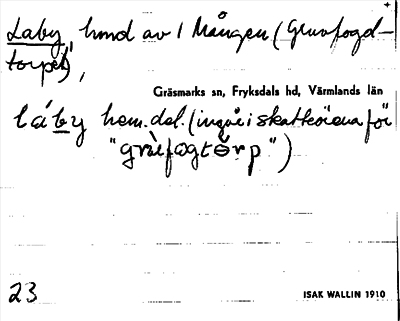 Laby, hmd av 1 Mången (Gruvfogd-
torpet),
Gräsmarks sn, Fryksdals hd, Värmlands län
láby hem.del. (ingår i skatteöresa för
"grùefogtörp")
23
ISAK WALLIN 1910